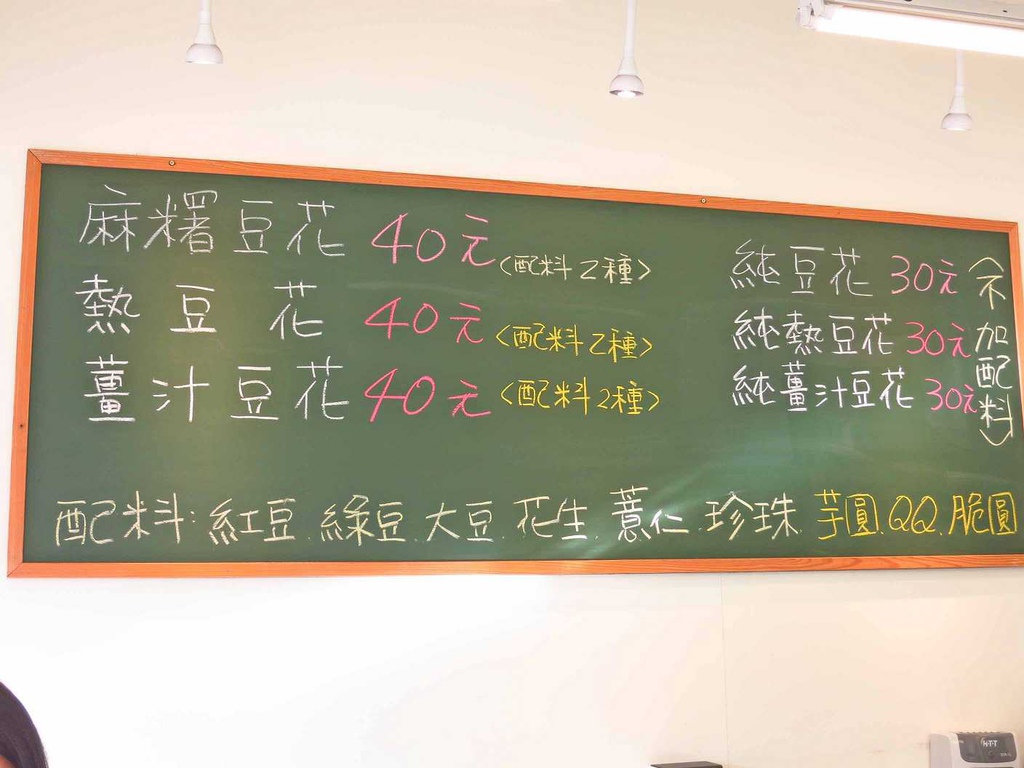 麻糬豆花 40元 <配料2種>
熱豆花 40元 <配料2種>
薑汁豆花 40元 <配料2種>
純豆花 30元
純熱豆花 30元
純薑汁豆花 30元
(不加配料)
配料:紅豆.綠豆.大豆.花生.薏仁.珍珠.芋圓.QQ.脆圓